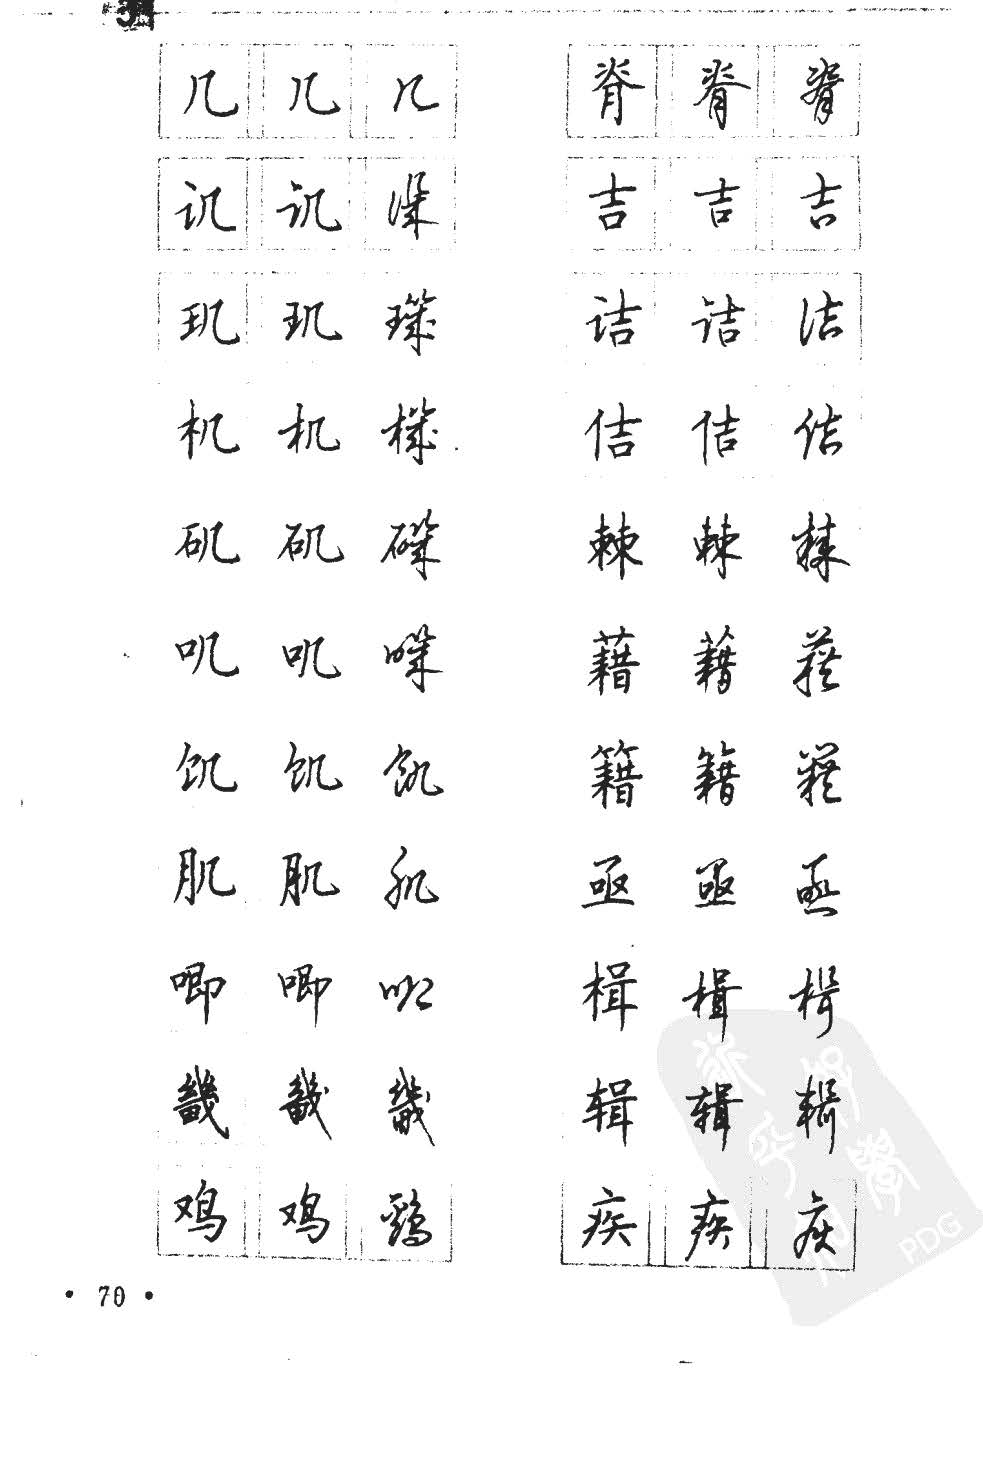 几 几 几 脊 脊 脊
讥 讥 讥 吉 吉 吉
玑 玑 璣 诘 诘 诘
机 机 機 佶 佶 佶
矶 矶 磯 棘 棘 棘
叽 叽 嘰 藉 藉 藉
饥 饥 饥 籍 籍 籍
肌 肌 肌 亟 亟 亟
唧 唧 唧 楫 楫 楫
畿 畿 畿 辑 辑 辑
鸡 鸡 鷄 疾 疾 疾
• 70 •
PDG